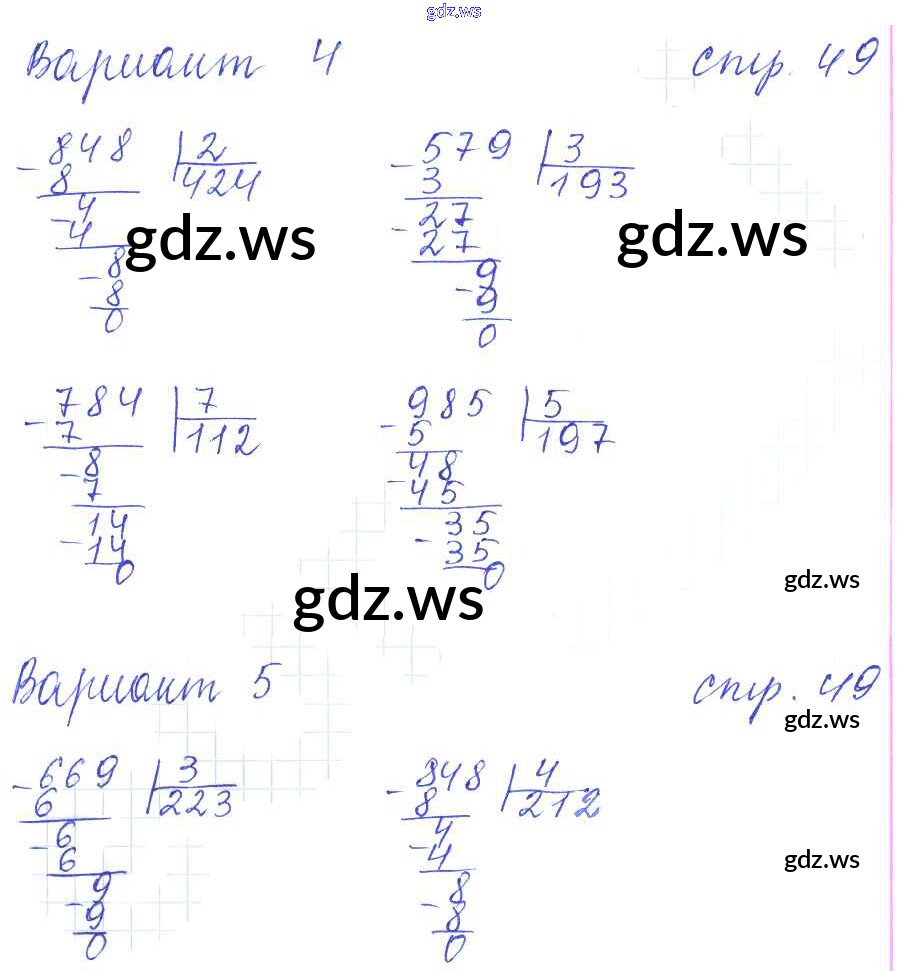 gdz.ws
Вариант 4 стр. 49
- 848 | 2 - 579 | 3
8 424 3 193
- 4 - 27
4 27
gdz.ws gdz.ws
- 8 - 9
8 9
0 0
- 784 | 7 - 985 | 5
7 112 5 197
- 8 - 48
7 45
- 14 - 35
14 35
0 0
gdz.ws
gdz.ws
Вариант 5 стр. 49
gdz.ws
- 669 | 3 - 848 | 4
6 223 8 212
- 6 - 4
6 4
gdz.ws
- 9 - 8
9 8
0 0